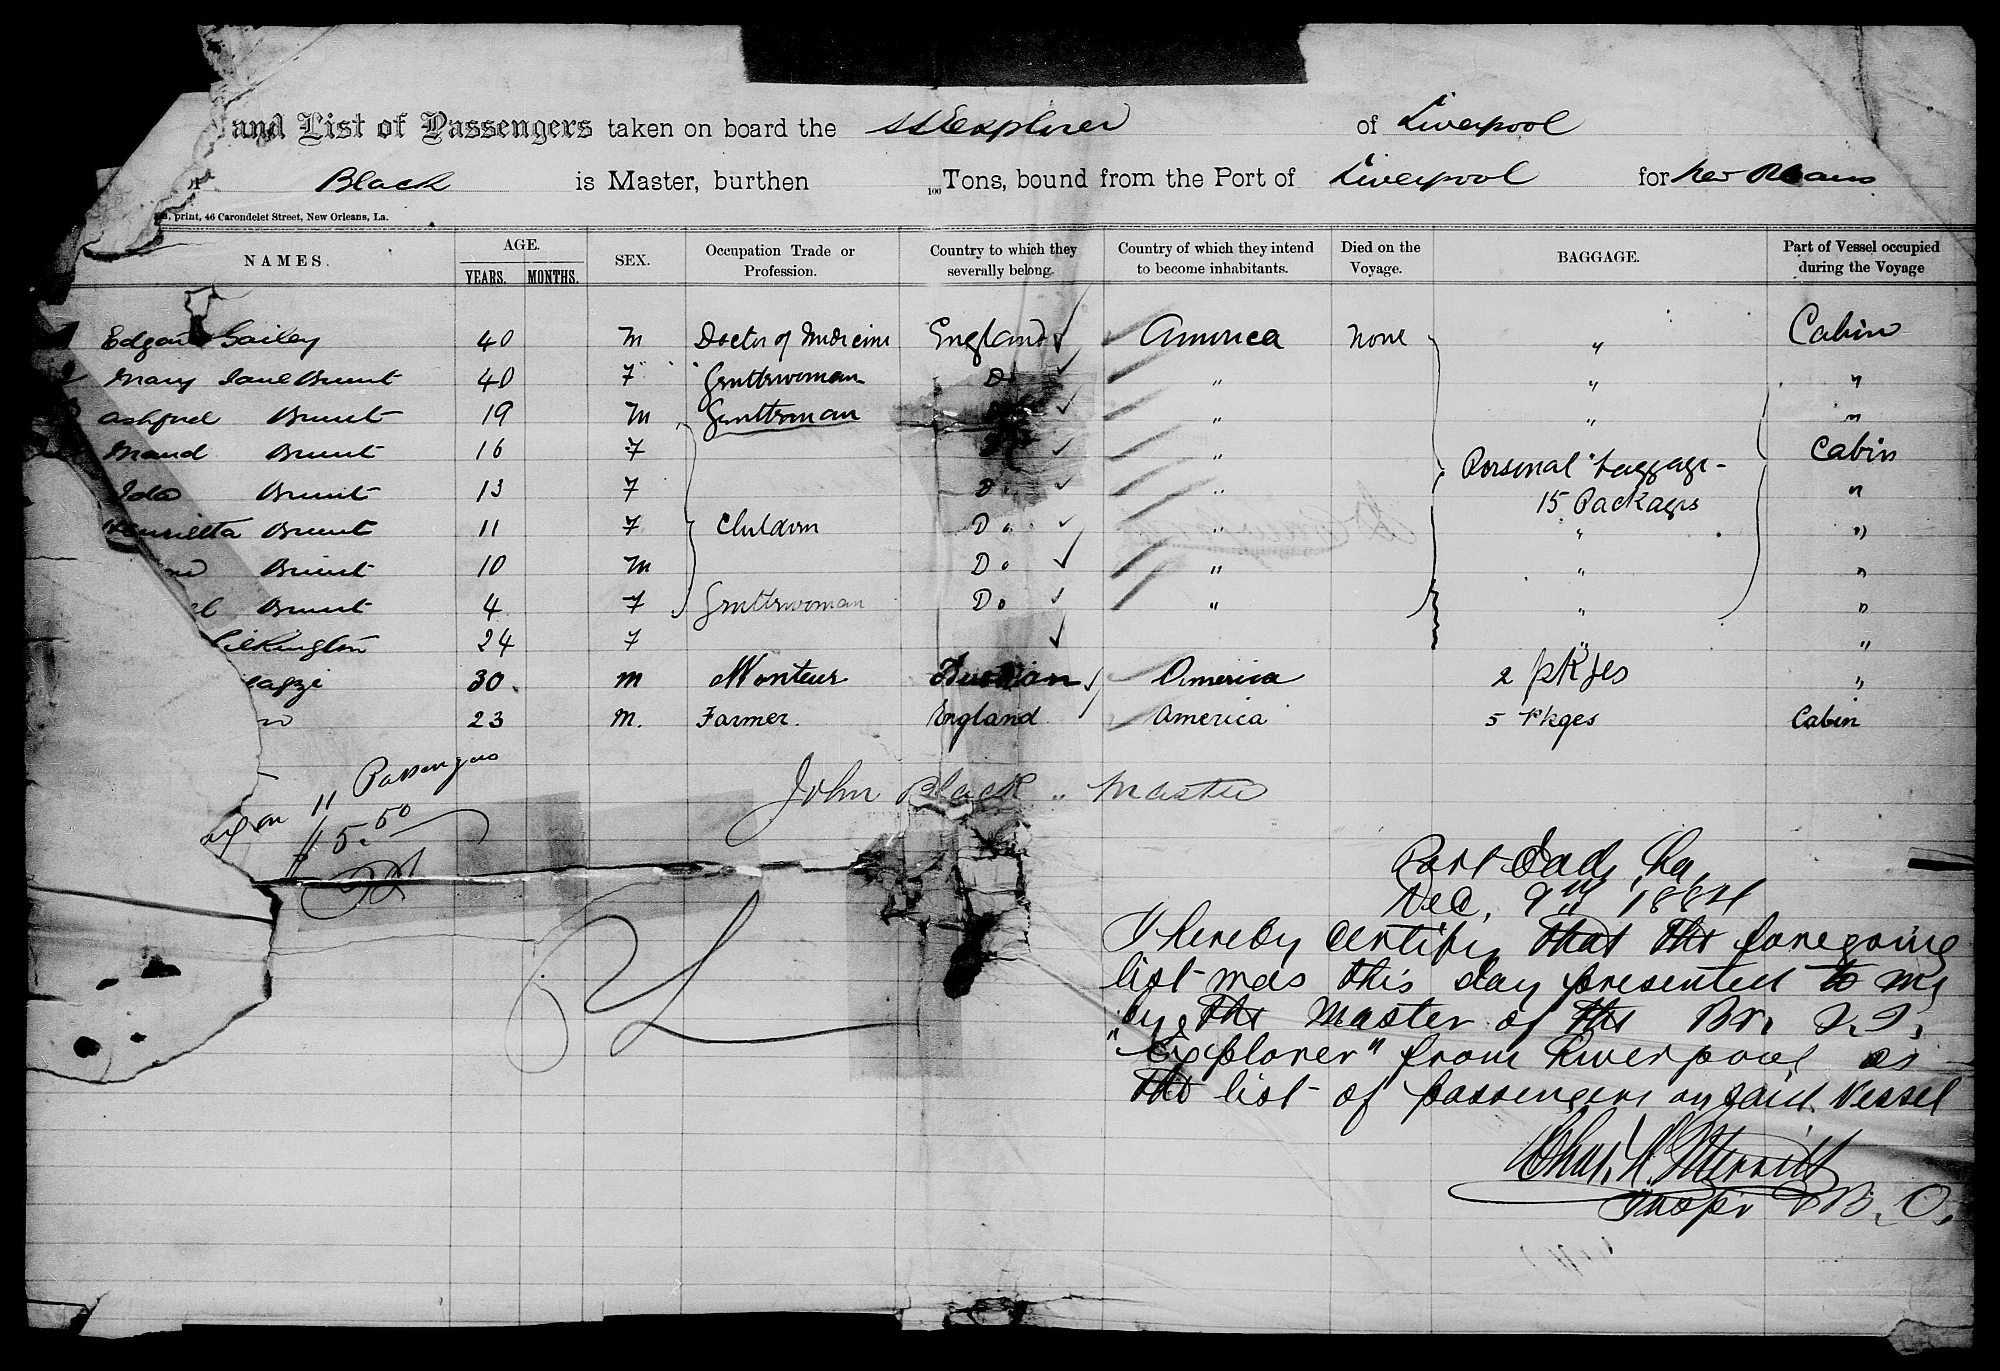 and List of Passengers taken on board the SS Explorer of Liverpool
Black is Master, burthen 100 Tons, bound from the Port of Liverpool for New Orleans
print, 46 Carondelet Street, New Orleans, La.
NAMES. AGE. YEARS. MONTHS. SEX. Occupation Trade or Profession. Country to which they severally belong. Country of which they intend to become inhabitants. Died on the Voyage. BAGGAGE. Part of Vessel occupied during the Voyage
Edgar Gailey 40 M Doctor of Medicine England America None " Cabin
Mary Jane Brunt 40 F Gentlewoman Do " " "
Ashford Brunt 19 M Gentleman " " "
Maud Brunt 16 F " Cabin
Personal baggage -
Ida Brunt 13 F D. " "
15 Packages
Henrietta Brunt 11 F Children Do " " "
Brunt 10 M Do " " "
Brunt 4 F Gentlewoman Do " " "
ilkington 24 F " "
30. M Monteur America 2 pkges "
23 M. Farmer. England America 5 Pkges Cabin
on 11 Passengers
$5.50
John Black .. Master
Port Eads, La,
Dec, 9th 1884
I hereby certify that the foregoing
list was this day presented to me
by the Master of the Br. S.S.
"Explorer" from Liverpool as
the list of passengers on said vessel
Chas. H. Merritt
Inspr B. O.